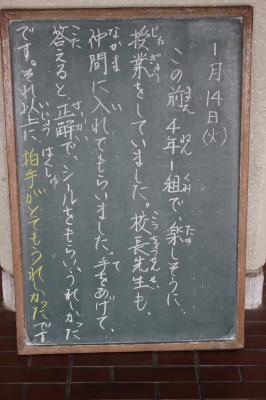 1月14日(火)
この前、4年1組で、楽しそうに、
授業をしていました。校長先生も、
仲間に入れてもらいました。手をあげて、
答えると正解で、シールをもらい、うれしかった
です。それ以上に、拍手がとてもうれしかったです